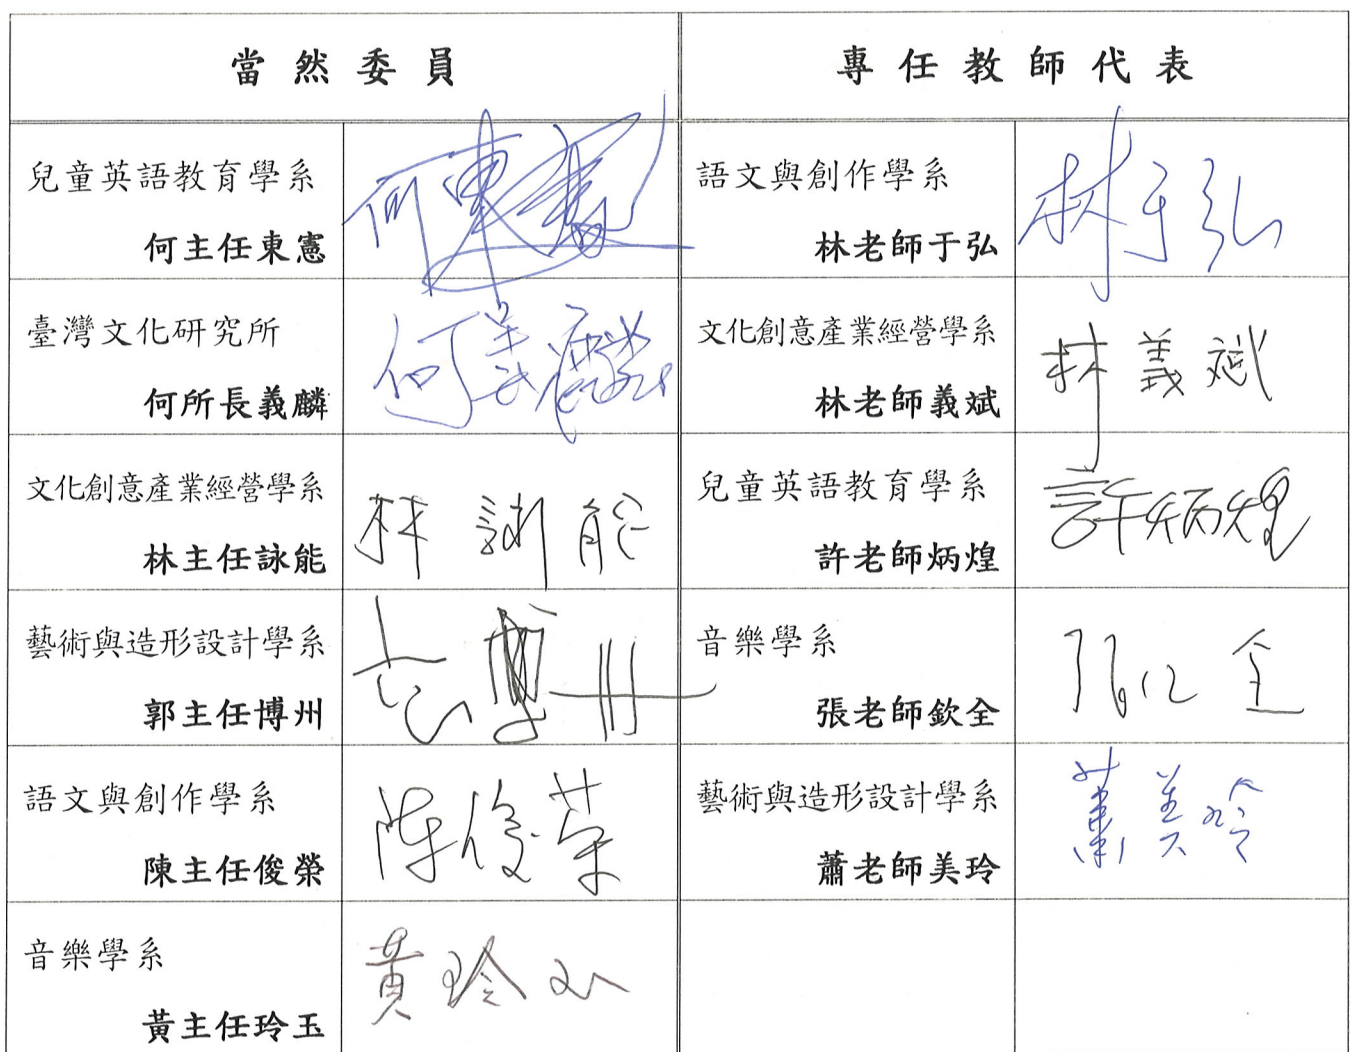 當然委員
專任教師代表
兒童英語教育學系
何主任東憲
何東憲
語文與創作學系
林老師于弘
林于弘
臺灣文化研究所
何所長義麟
何義麟
文化創意產業經營學系
林老師義斌
林義斌
文化創意產業經營學系
林主任詠能
林詠能
兒童英語教育學系
許老師炳煌
許炳煌
藝術與造形設計學系
郭主任博州
郭博州
音樂學系
張老師欽全
張欽全
語文與創作學系
陳主任俊榮
陳俊榮
藝術與造形設計學系
蕭老師美玲
蕭美玲
音樂學系
黃主任玲玉
黃玲玉